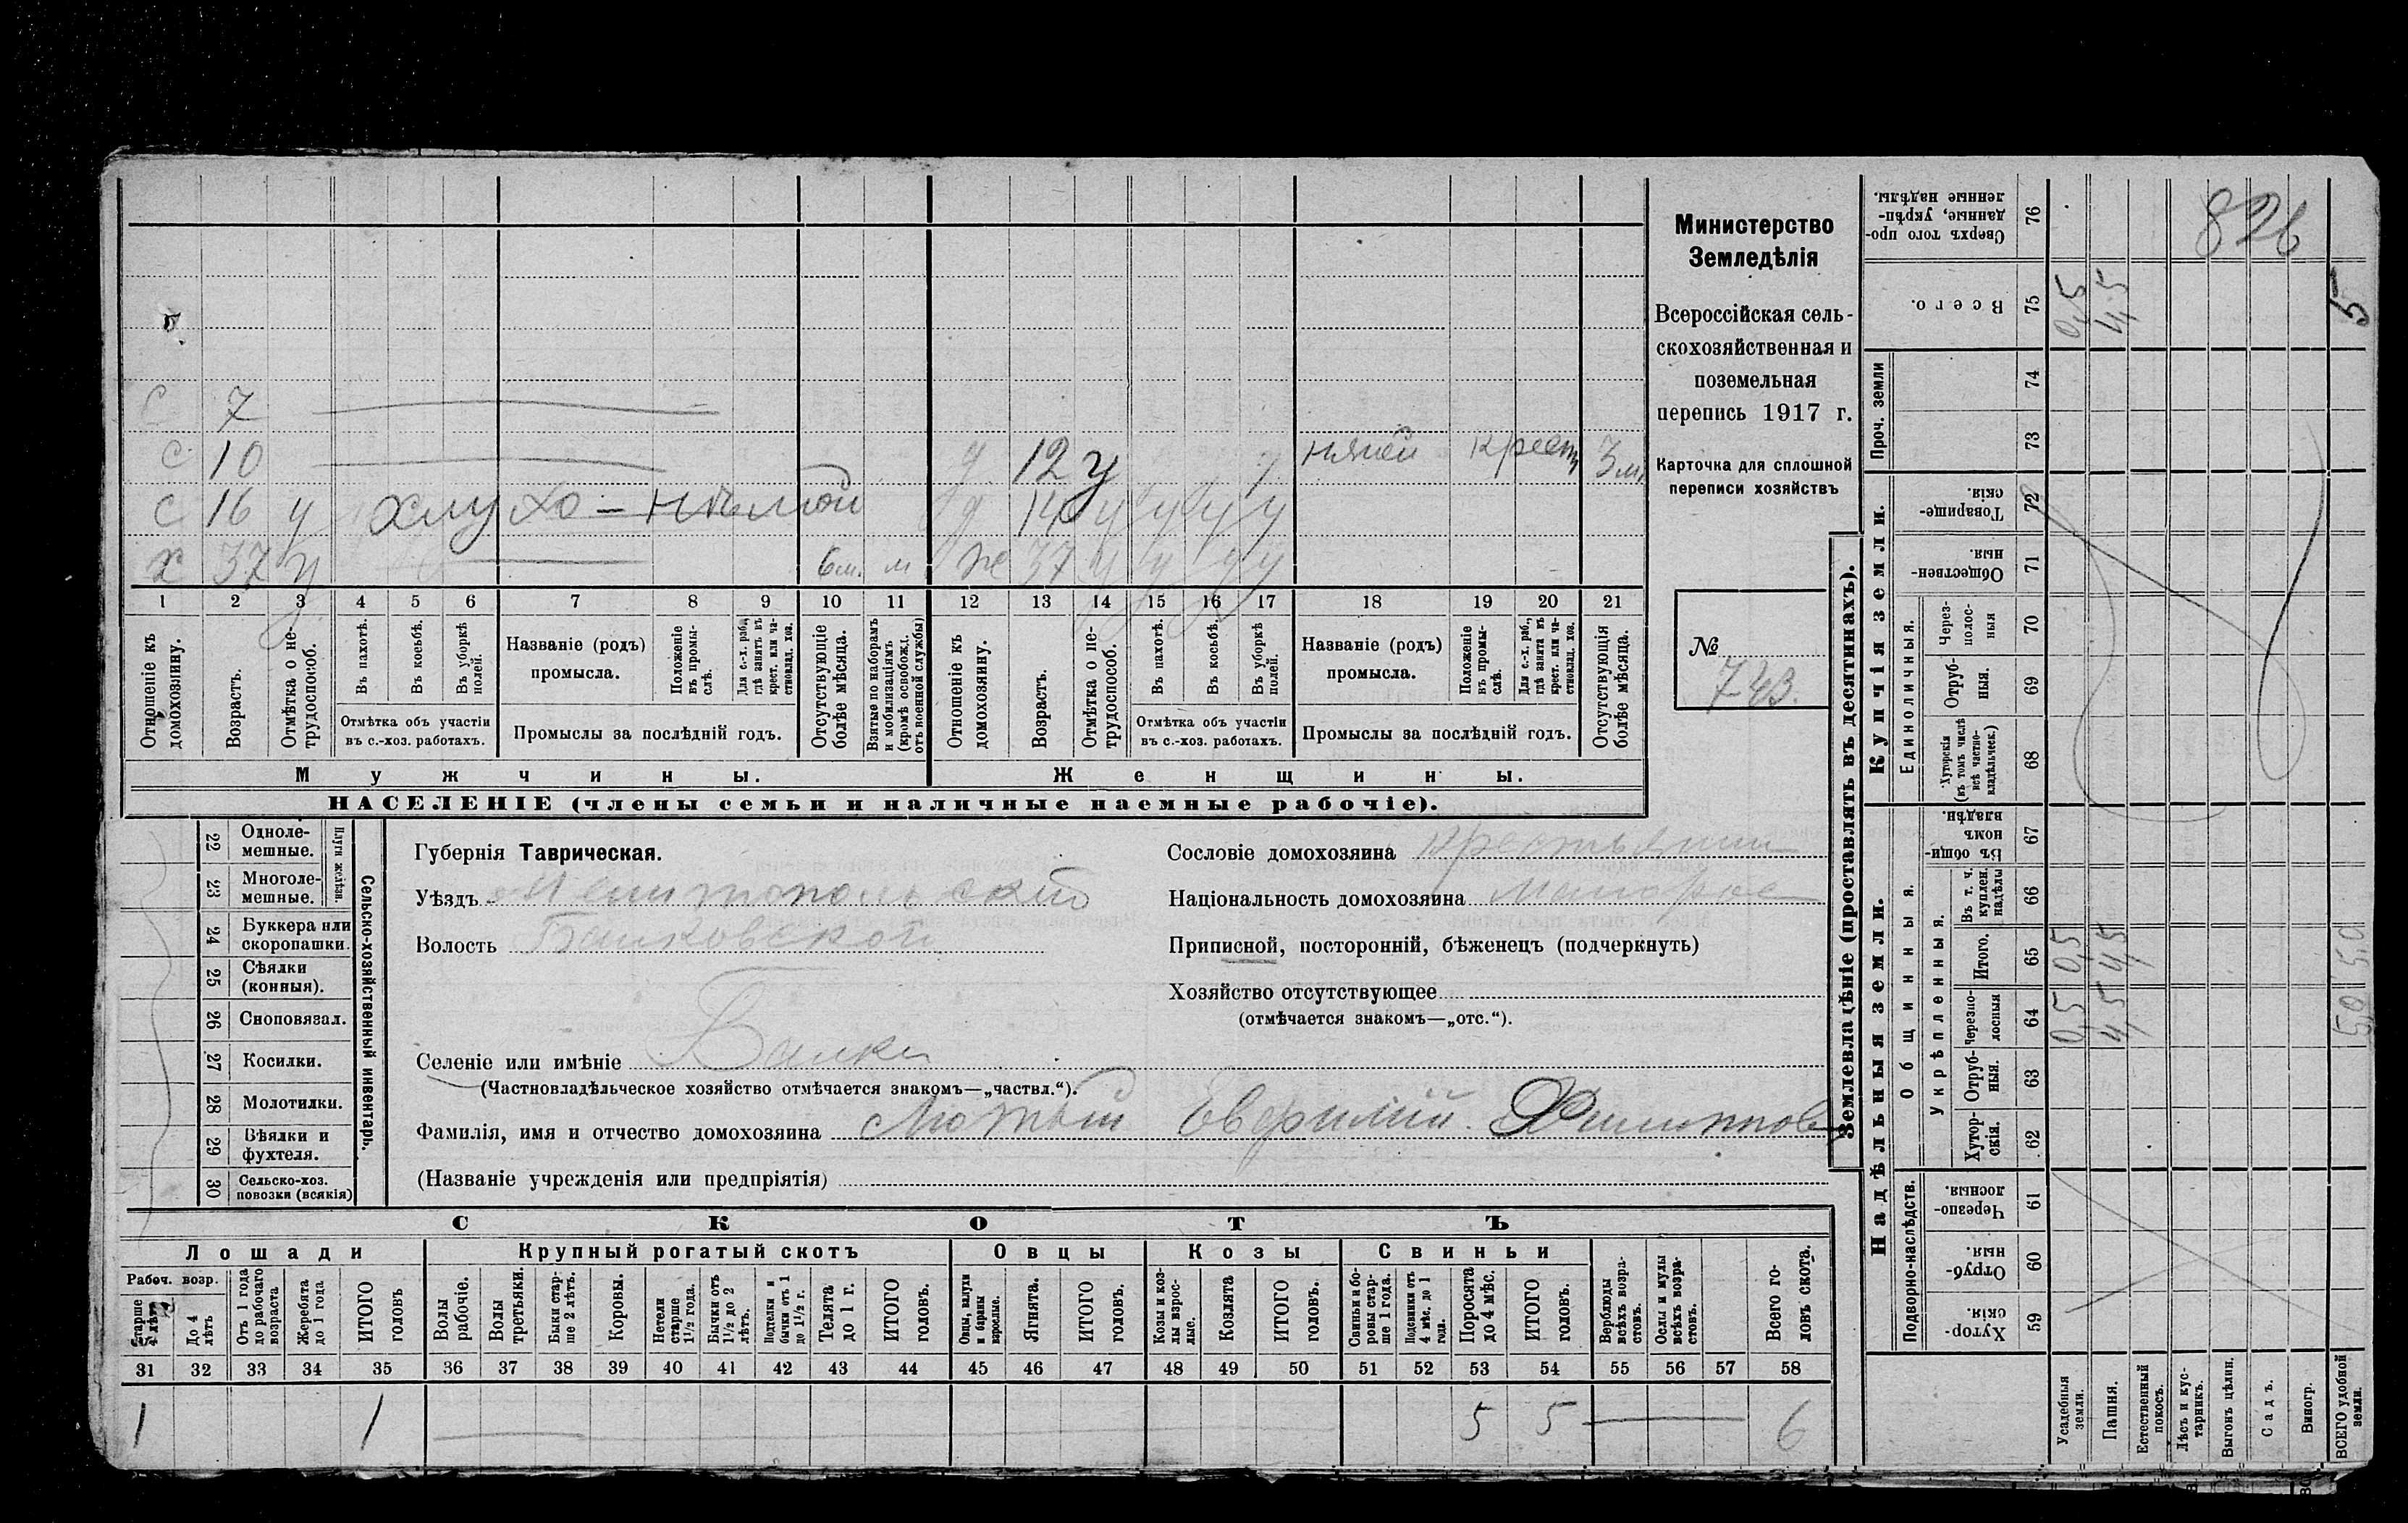 Министерство
Земледѣлія
Всероссійская сель-
скохозяйственная и
поземельная
перепись 1917 г.
Карточка для сплошной
переписи хозяйствъ
№
743.
826
С 7
С 10
д 12 у няней крест 3 м
С 16 у хлухо-нѣмой
д 14 у у у у
х 37 у 6 м. м
ж 37 у у у у
1 2 3 4 5 6 7 8 9 10 11 12 13 14 15 16 17 18 19 20 21
Отношеніе къ домохозяину.
Возрастъ.
Отмѣтка о не-трудоспособ.
Въ пахотѣ.
Въ косьбѣ.
Въ уборкѣ полей.
Отмѣтка объ участіи
въ с.-хоз. работахъ.
Названіе (родъ)
промысла.
Положеніе въ промы-слѣ.
Для с.-х. раб., гдѣ занятъ въ крест. или ча-стновлад. хоз.
Промыслы за послѣдній годъ.
Отсутствующіе болѣе мѣсяца.
Взятые по наборамъ и мобилизаціямъ (кромѣ освобожд. отъ военной службы)
Отношеніе къ домохозяину.
Возрастъ.
Отмѣтка о не-трудоспособ.
Въ пахотѣ.
Въ косьбѣ.
Въ уборкѣ полей.
Отмѣтка объ участіи
въ с.-хоз. работахъ.
Названіе (родъ)
промысла.
Положеніе въ промы-слѣ.
Для с.-х. раб., гдѣ занята въ крест. или ча-стновлад. хоз.
Промыслы за послѣдній годъ.
Отсутствующія болѣе мѣсяца.
Мужчины.
Женщины.
НАСЕЛЕНІЕ (члены семьи и наличные наемные рабочіе).
22 Одноле-мешные.
23 Многоле-мешные.
Плуги желѣзн.
24 Буккера или скоропашки.
25 Сѣялки (конныя).
26 Сноповязал.
27 Косилки.
28 Молотилки.
29 Вѣялки и фухтеля.
30 Сельско-хоз. повозки (всякія)
Сельско-хозяйственный инвентарь.
Губернія Таврическая.
Уѣздъ Мелитопольскій
Волость Балковской
Селеніе или имѣніе Балки
(Частновладѣльческое хозяйство отмѣчается знакомъ—„частвл.“).
Фамилія, имя и отчество домохозяина Лютый Евфимій Филиппов
(Названіе учрежденія или предпріятія)
Сословіе домохозяина крестьянин
Національность домохозяина малорос
Приписной, посторонній, бѣженецъ (подчеркнуть)
Хозяйство отсутствующее
(отмѣчается знакомъ—„отс.“).
СКОТЪ
Лошади
Крупный рогатый скотъ
Овцы
Козы
Свиньи
Рабоч. возр.
Старше 4 лѣтъ
До 4 лѣтъ
Отъ 1 года до рабочаго возраста
Жеребята до 1 года
ИТОГО головъ
Волы рабочіе.
Волы третьяки.
Быки стар-ше 2 лѣтъ.
Коровы.
Нетели старше 1½ года.
Бычки отъ 1½ до 2 лѣтъ.
Подтелки и бычки отъ 1 до 1½ г.
Телята до 1 г.
ИТОГО головъ.
Овцы, валухи и бараны взрослые.
Ягнята.
ИТОГО головъ.
Козы и коз-лы взрос-лые.
Козлята
ИТОГО головъ.
Свиньи и бо-ровы стар-ше 1 года.
Подсвинки отъ 4 мѣс. до 1 года.
Поросята до 4 мѣс.
ИТОГО головъ.
Верблюды всѣхъ возра-стовъ.
Ослы и мулы всѣхъ возра-стовъ.
Всего го-ловъ скота.
31 32 33 34 35 36 37 38 39 40 41 42 43 44 45 46 47 48 49 50 51 52 53 54 55 56 57 58
1 1 5 5 6
Землевладѣніе (проставлять въ десятинахъ).
Купчія земли.
Надѣльныя земли.
Сверхъ того про-данные, укрѣп-ленные надѣлы. 76
Всего. 75 0,5 4,5 5
Проч. земли 74
73
Товарище-скія. 72
Обществен-ныя. 71
Единоличныя.
Через-полос-ныя 70
Отруб-ныя. 69
Хуторскія (въ томъ числѣ всѣ частно-владѣльческ.) 68
Общинныя.
Въ общин-номъ владѣн. 67
Укрѣпленныя.
Въ т. ч. куплен. надѣлы 66
Итого. 65 0,5 4,5 5,0
Черезпо-лосныя 64 0,5 4,5 5,0
Отруб-ныя. 63
Хутор-скія. 62
Подворно-наслѣдств.
Черезпо-лосныя. 61
Отруб-ныя. 60
Хутор-скія. 59
Усадебныя земли.
Пашня.
Естественный покосъ.
Лѣсъ и кус-тарникъ.
Выгонъ цѣлин.
Садъ.
Виногр.
ВСЕГО удобной земли.